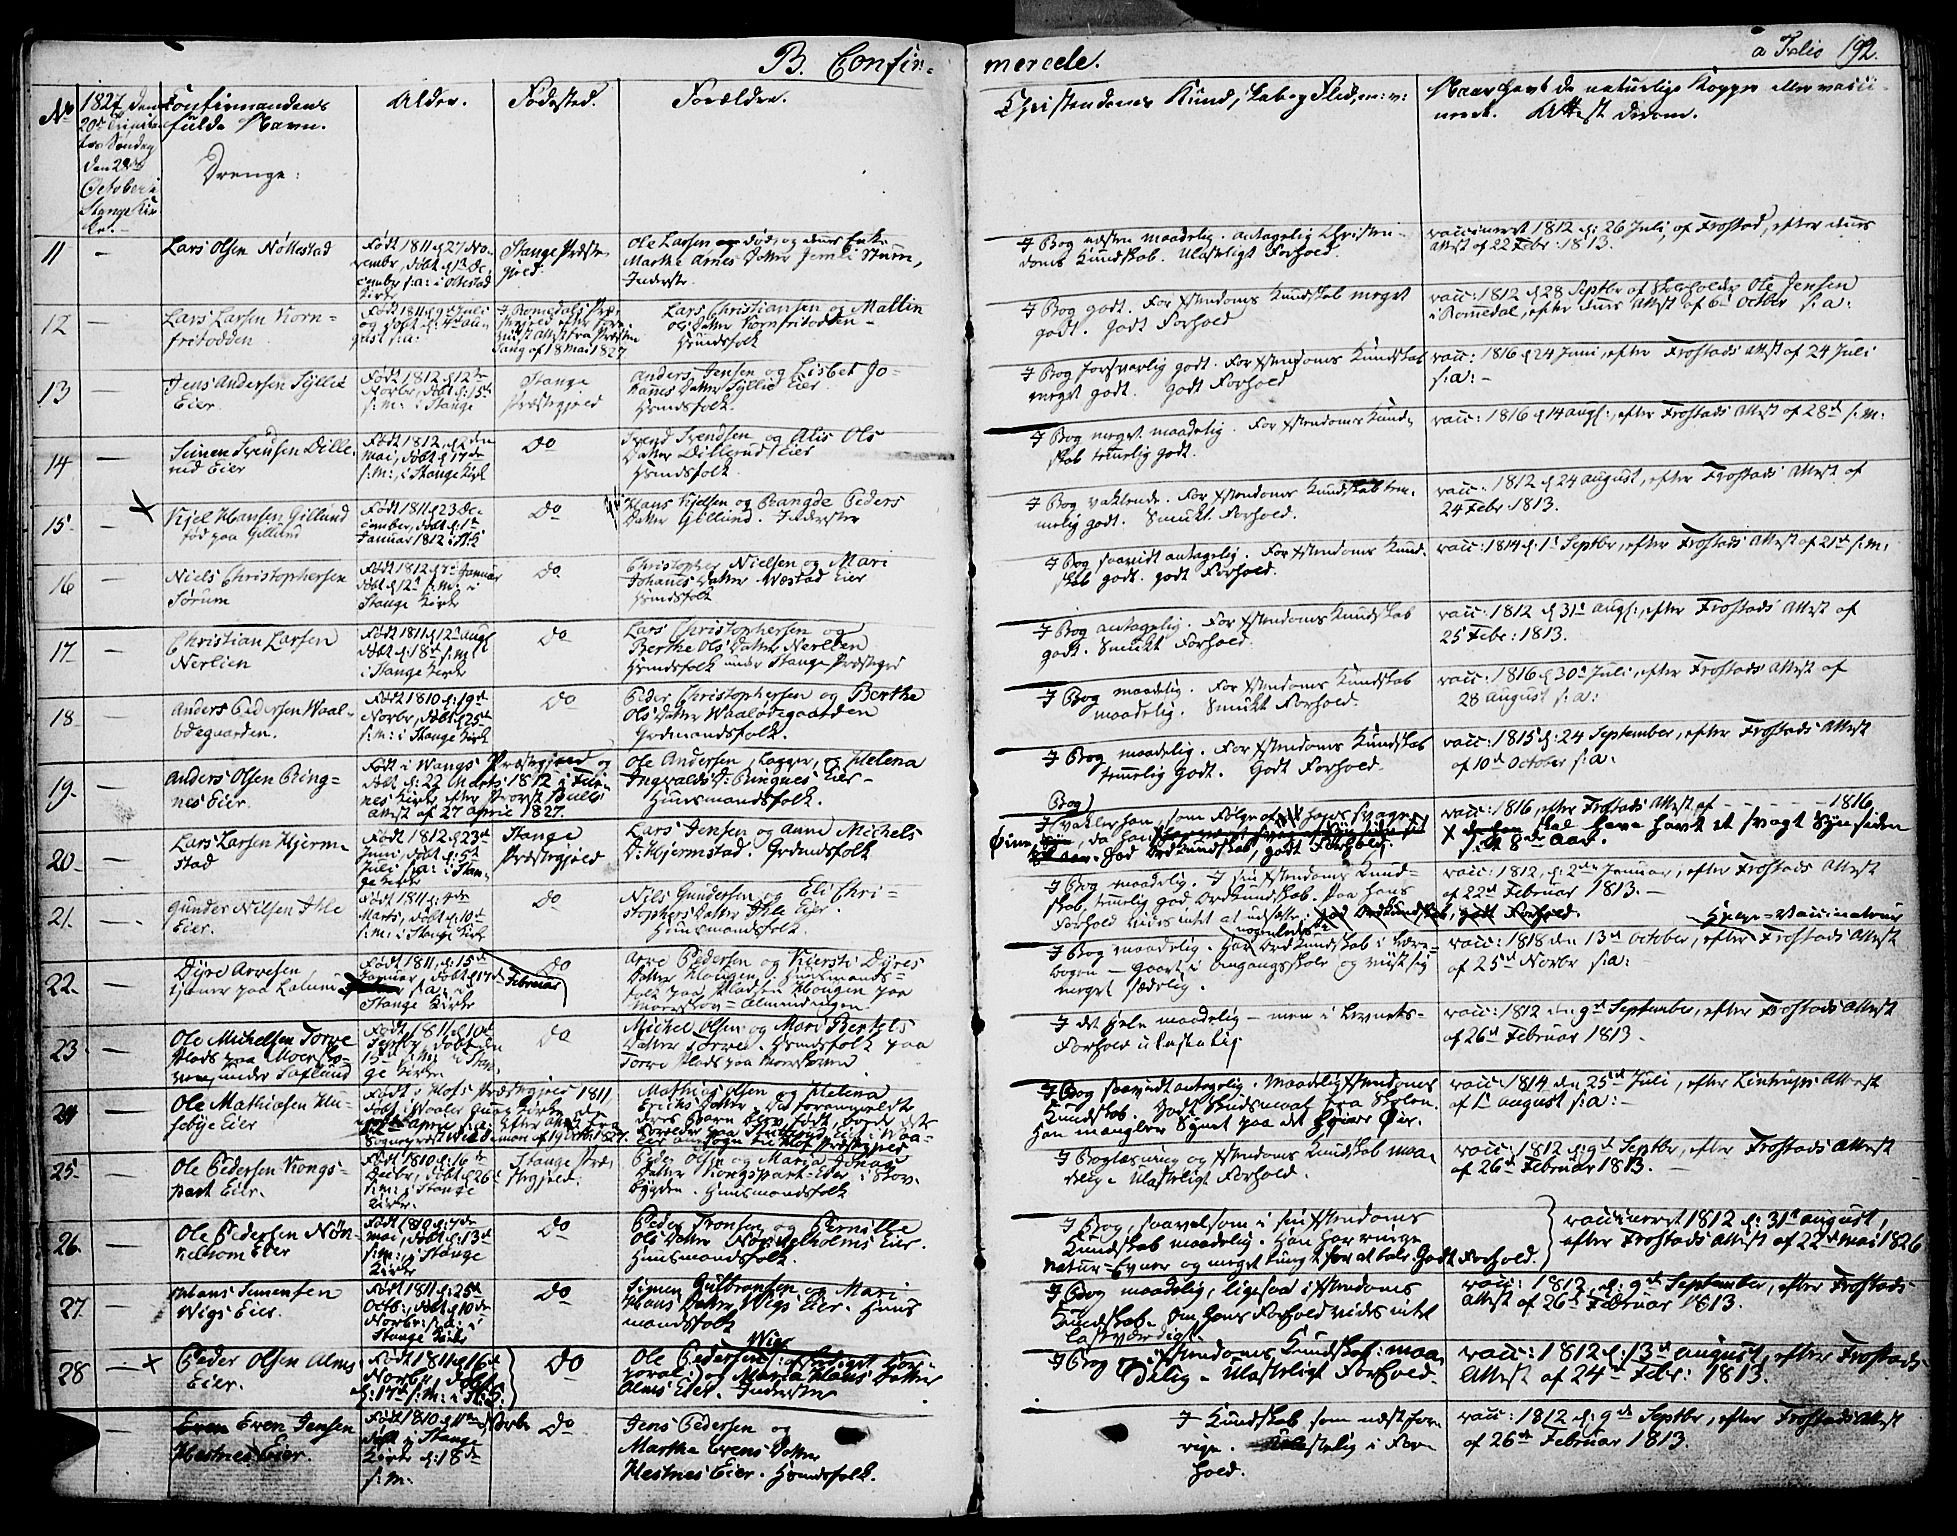 B. Confir=
merede.
a Folio 192.
No
1827 den
20de Trinita
tis Søndag
den 28de
October i
Stange Kir
ke.
Confirmandens
fulde Navn.
Drenge:
Alder.
Fødested.
Forældre.
Christendoms Kundskab og Flid, m: v:
Naar havt de naturlige Kopper eller vacci-
neret. Attest derom.
11 —
Lars Olsen Nøttestad
Født 1811 d 27 No
vember, døbt d 13 De
cember s: a: i Ottestad
Kirke
Stange Præste
gjeld.
Ole Larsen død, og dens Enke
Marthe Arnes Datter
Inderste
I Bog næsten maadelig. antagelig Christen-
doms Kundskab. Ulasteligt Forhold.
vaccineret 1812 d: 26 Juli, af Frostad, efter dens
Attest af 22 Febr 1813.
12 —
Lars Larsen Korn-
fritodden
Født 1811 d 9de Juli
og døpt d: 4de Au
gust s: a:
I Romedals Præ
stegjeld efter
Attest fra Præsten
Lang af 18 Mai 1827
Lars Christiansen og Mallin
Ols Datter Kornfritodden -
Huusfolk
I Bog godt. For Xstendoms Kundskab meget
godt. Godt Forhold
vacc: 1812 d 28 Septbr af Skoleholder Ole Jensen
i Romedal, efter dens Attest af 6te Octbr s: a:
13 —
Jens Andersen Gyllie
Eier.
Født 1812 d 12te
Novbr, døbt d: 15de
s: m: i Stange
Stange
Præstegjeld
Anders Jensen og Lisbet Jo-
hanes Datter Gyllie Eier.
Huusfolk.
I Bog forsvarlig godt. For Xstendoms Kundskab
meget godt. Godt Forhold
vacc: 1816 d 24 Juni, efter Frostads Attest af 24 Juli
s: a: -
14 —
Simen Svensen Dille
rud Eier
Født 1812, d 2den
Mai, døbt d 17de
s: m: i Stange Kirke
Do
Svend Svendsen og Alis Ols
Datter Dillerud Eier
Huusfolk.
I Bog meget maadelig. For Xstendoms Kund-
skab temelig godt.
vacc: 1816 d 14 Augs:, efter Frostads Attest af 28de s: m:
15 — X
Kjel Hansen Gillund
født paa Gillund
Født 1811 d 23 De
cember, døbt d 1te
Januar 1812 i St: K:
Do
Hans Kjelsen og Rangde Peders
Datter Gillund. Inderster
I Bog vaklende. For Xstendoms Kundskab tem-
melig godt. Smukt Forhold.
vacc: 1812 d 24 August, efter Frostads Attest af
24 Febr: 1813.
16 —
Niels Christophersen
Sørum
Født 1812 Januar
døbt d 12te s: m: i
Stange Kirke
Do
Christopher Nielsen og Mari
Johanes Datter Wæstad Eier
Huusfolk
I Bog saavidt antagelig. For Xstendoms Kund-
skab godt. godt Forhold.
vacc: 1814 d: 1te Septbr, efter Frostads Attest af 21de s: m:
17 —
Christian Larsen
Nerlien
Født 1811 d 12te Augs
døbt d: 18de s: m:
i Stange Kirke
Do
Lars Christophersen og
Berthe Ols Datter Nerlien
Huusfolk under Stange Præstegrd
I Bog antagelig. For Xstendoms Kundskab
godt. Smukt Forhold.
vacc: 1812 d 31te Augs:, efter Frostads Attest af
25 Febr: 1813.
18 —
Anders Pedersen Waal-
ødegaarden.
Født 1810 d: 19de
Novbr, døbt d 25de
s: m: i Stange Kirke
Do
Peder Christophersen og Berthe
Ols Datter Waalødegaarden
Grdmandsfolk.
I Bog maadelig. For Xstendoms Kundskab
maadelig. Smukt Forhold.
vacc: 1816 d 30te Juli, efter Frostads Attest af
28 August s: a:
19 —
Anders Olsen Ring-
nes Eier.
Født i Wangs Præstegjeld og
døbt d: 22 Marts 1812 i Fur-
nes Kirke efter Provst Bulls
Attest af 27 April 1827.
Ole Andersen, Lægger, og Helena
Ingvalds D: Ringnes Eier-
Huusmandsfolk.
I Bog maadelig. For Xstendoms Kundskab
temelig Godt. Godt Forhold.
vacc: 1815 d: 24 September, efter Frostads Attest
af 10de October s: a:
20 —
Lars Larsen Hjerm-
stad
Født 1812 d 23de
Juni, døbt d: 5te
Juli s: a: i Stan-
ge Kirke
Stange
Præstegjeld
Lars Jensen og Anne Michels
D: Hjermstad. Grdmandsfolk
I Bog vakler han, som Følge af hans svage
Øine, da han
God Ordkundskab, godt Forhold.
vacc: 1816, efter Frostads Attest af - - - - - 1816
X skal have havt et svagt Syn siden
sit 8de Aar.
21. —
Gunder Nilsen Ihle
Eier.
Født 1811 d: 4de
Marts, døbt d: 10de
s: m: i Stange Kirke
Do
Nils Gundersen og Eli Chri-
stophers Datter Ihle Eier.
Huusmandsfolk.
I Bog maadelig. I sin Xstendoms Kund-
skab temelig god Ordkundskab. Paa hans
Forhold vides intet at udsætte. God Ordkundskab, godt Forhold.
vacc: 1812, d: 2den Januar, efter Frostads Attest
af 22de Februar 1813. —
22. —
Dyre Arvesen
tjener paa Lalum
Født 1811, d: 15de
Januar, døbt d 17de Februar
s: a: i
Stange Kirke
Do
Arve Pedersen og Kjersti Dyres
Datter Haugen. Huusmands-
folk paa Pladsen Haugen paa
Moreskov= Almindingen
I Bog maadelig. Har nogenledes Ordkundskab i Lære-
bogen — gaaet i Omgangsskole og viist sig
meget sædelig.
Hjelpe=Vaccinateur
vacc: 1818 den 13de October, efter Frostads Attest
af 25de Novbr s: a: -
23 —
Ole Michelsen Torve
Plads paa Moersko-
ven, under Saxlund
Født 1811 d 10de
Septbr, døbt den
15de s: m: i Stan-
ge Kirke
Do
Michel Olsen og Mari Bertels
Datter Torve. Huusfolk paa
Torve Plads paa Moerskoven.
I det Hele maadelig — men i Levnets-
Forhold ulastelig.
vacc: 1812 den 9de September, efter Frostads Attest
af 26de Februar 1813.
24 —
Ole Mathiesen Hu-
sebye Eier
Født i Hofs Præstegjeld 1811
Mathias Olsen og Helena
Erichs Datter
I Bog saavidt antagelig. Maadelig Xstendoms
Kundskab. Godt Skudsmaal fra Skolen.
Han mangler Synet paa det høire Øie.
vacc: 1814 den 25de Juli, efter Lintrups Attest
af 1te August s: a: -
25. —
Ole Pedersen Kongs-
part Eier.
Født 1810 d: 16de
Decbr, døbt d 26de
s: m: i Stange
Kirke.
Stange Præ-
stegjeld.
Peder Olsen og Maria Jonas
Datter Kongspart Eier i Stor-
bygden. Huusmandsfolk
I Boglæsning og Xstendoms Kundskab maa-
delig. Ulasteligt Forhold.
vacc: 1812 d: 9de Septbr, efter Frostads Attest
af 26de Februar 1813. —
26. —
Ole Pedersen Nøn-
kelsom Eier
Født 1810 d: 7de
Mai, døbt d: 13de
s: m: i Stange
Kirke
Do
Peder Tronsen og Pernille
Ols Datter Nønkelholms Eier.
Huusmandsfolk.
I Bog, saavelsom i sin Xstendoms
Kundskab maadelig. Han har ringe
Natur-Evner og meget tungt for at tale. Godt Forhold.
vaccineret 1812 d: 31te August,
efter Frostads Attest af 22de Mai 1826
27. —
Hans Simensen
Wigs Eier.
Født 1811 d: 25de
Octbr:, døbt d 10de
Novbr: s: a: i
Stange Kirke
Do
Simen Gulbransen og Mari
Hans Datter Wigs Eier. Huus
mandsfolk
I Bog maadelig, ligesaa i Xstendoms
Kundskab. Om hans Forhold vides intet
lastværdigt.
vacc: 1812, d: 9de September, efter Frostads
Attest af 26de Februar 1813.
28 — X
Peder Olsen Alms
Eier.
Født 1811 d 16de
Novbr, døbt
d: 17de s: m: i St: K:
Do
Ole Pedersen Wigs afskediget Cor-
poral og Maria Hans Datter
Alms Eier. Inderster
I Bog og Xstendoms Kundskab: maa-
delig — Ulasteligt Forhold.
vacc: 1812 d: 13de August, efter Frostads
Attest af 24de Febr: 1813.
—
Even Even Jensen
Hestnes Eier.
Født 1810 d 11te Novbr
døbt i Stange
Kirke d: 18de
s: m.
Do
Jens Pedersen og
Marthe Evens Datter
Hestnes Eier. Huusfolk.
I Kundskab som næstfor-
rige. Ulastelig i For-
hold.
vacc: 1812, d: 9de Septbr, efter Frostads Attest
af 26de Februar 1813.